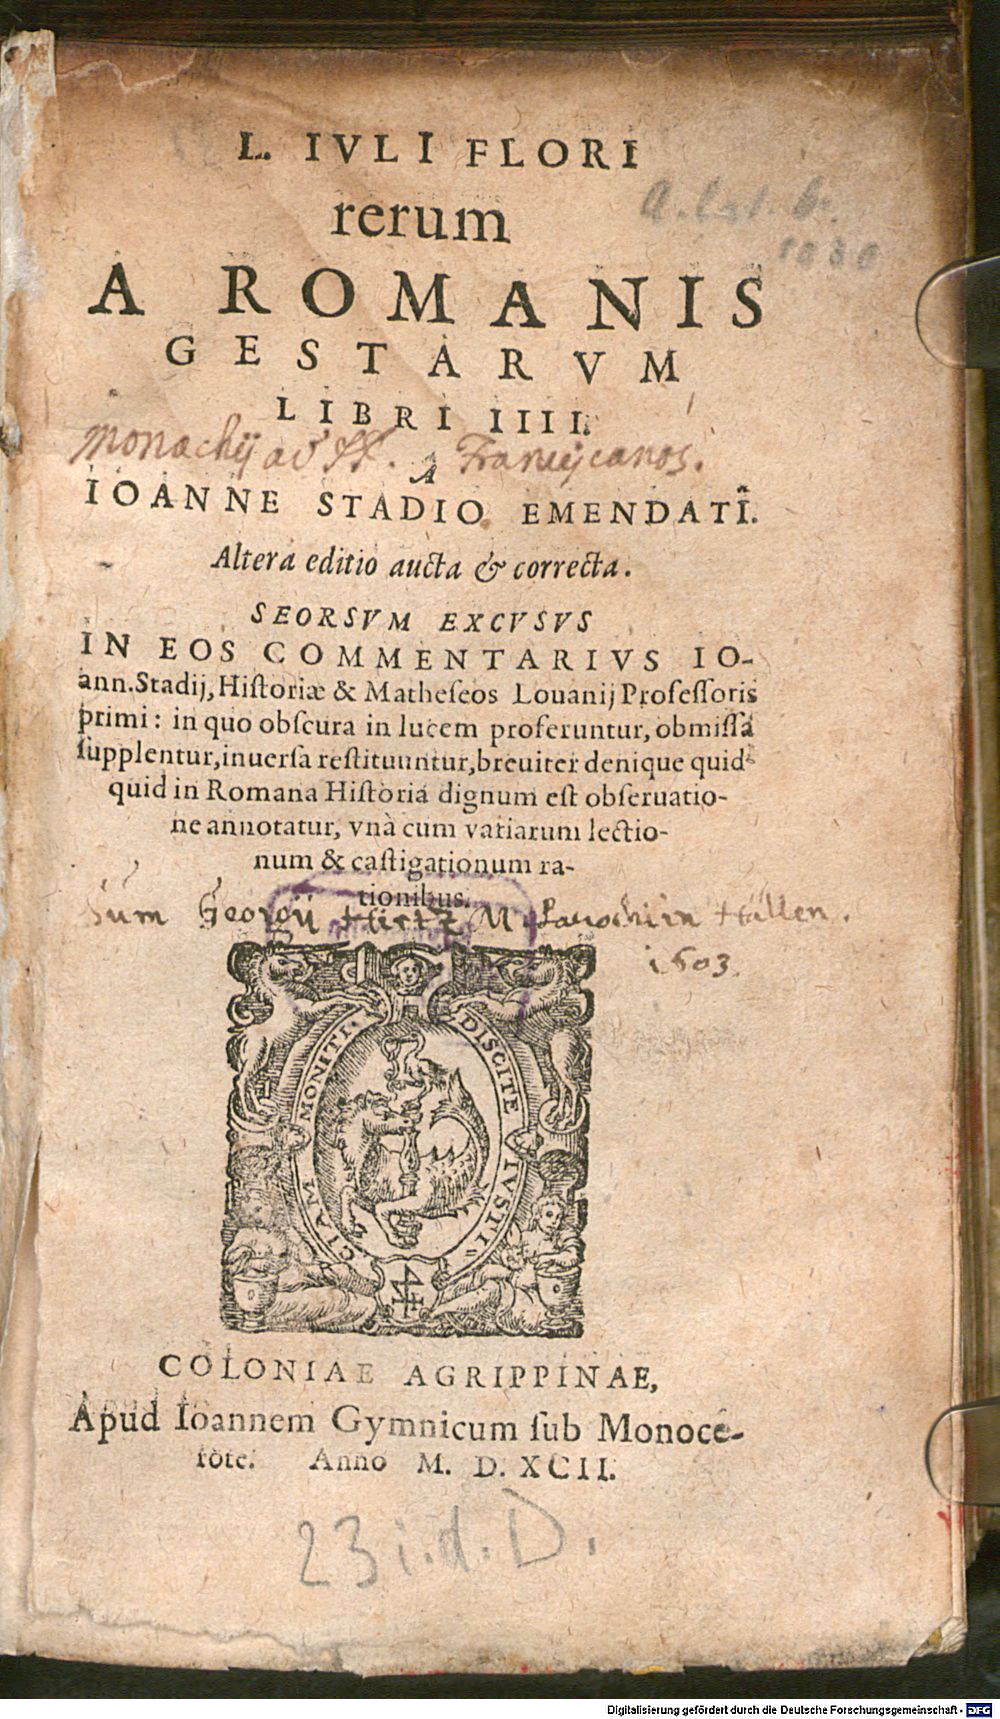 L. IVLI FLORI
rerum
A ROMANIS
GESTARVM
LIBRI IIII.
Monachij ad ff. Franciscanos.
A
IOANNE STADIO EMENDATI.
Altera editio aucta & correcta.
SEORSVM EXCVSVS
IN EOS COMMENTARIVS IO-
ann. Stadij, Historiæ & Matheseos Louanij Professoris
primi: in quo obscura in lucem proferuntur, obmissa
supplentur, inuersa restituuntur, breuiter denique quid-
quid in Romana Historia dignum est obseruatio-
ne annotatur, vnà cum variarum lectio-
num & castigationum ra-
tionibus.
Sum Georgii M. Hallen.
1603.
DISCITE IVSTI
CIAM MONITI.
COLONIAE AGRIPPINAE,
Apud Ioannem Gymnicum sub Monoce-
rote. Anno M. D. XCII.
23 i. d. D.
Digitalisierung gefördert durch die Deutsche Forschungsgemeinschaft - DFG